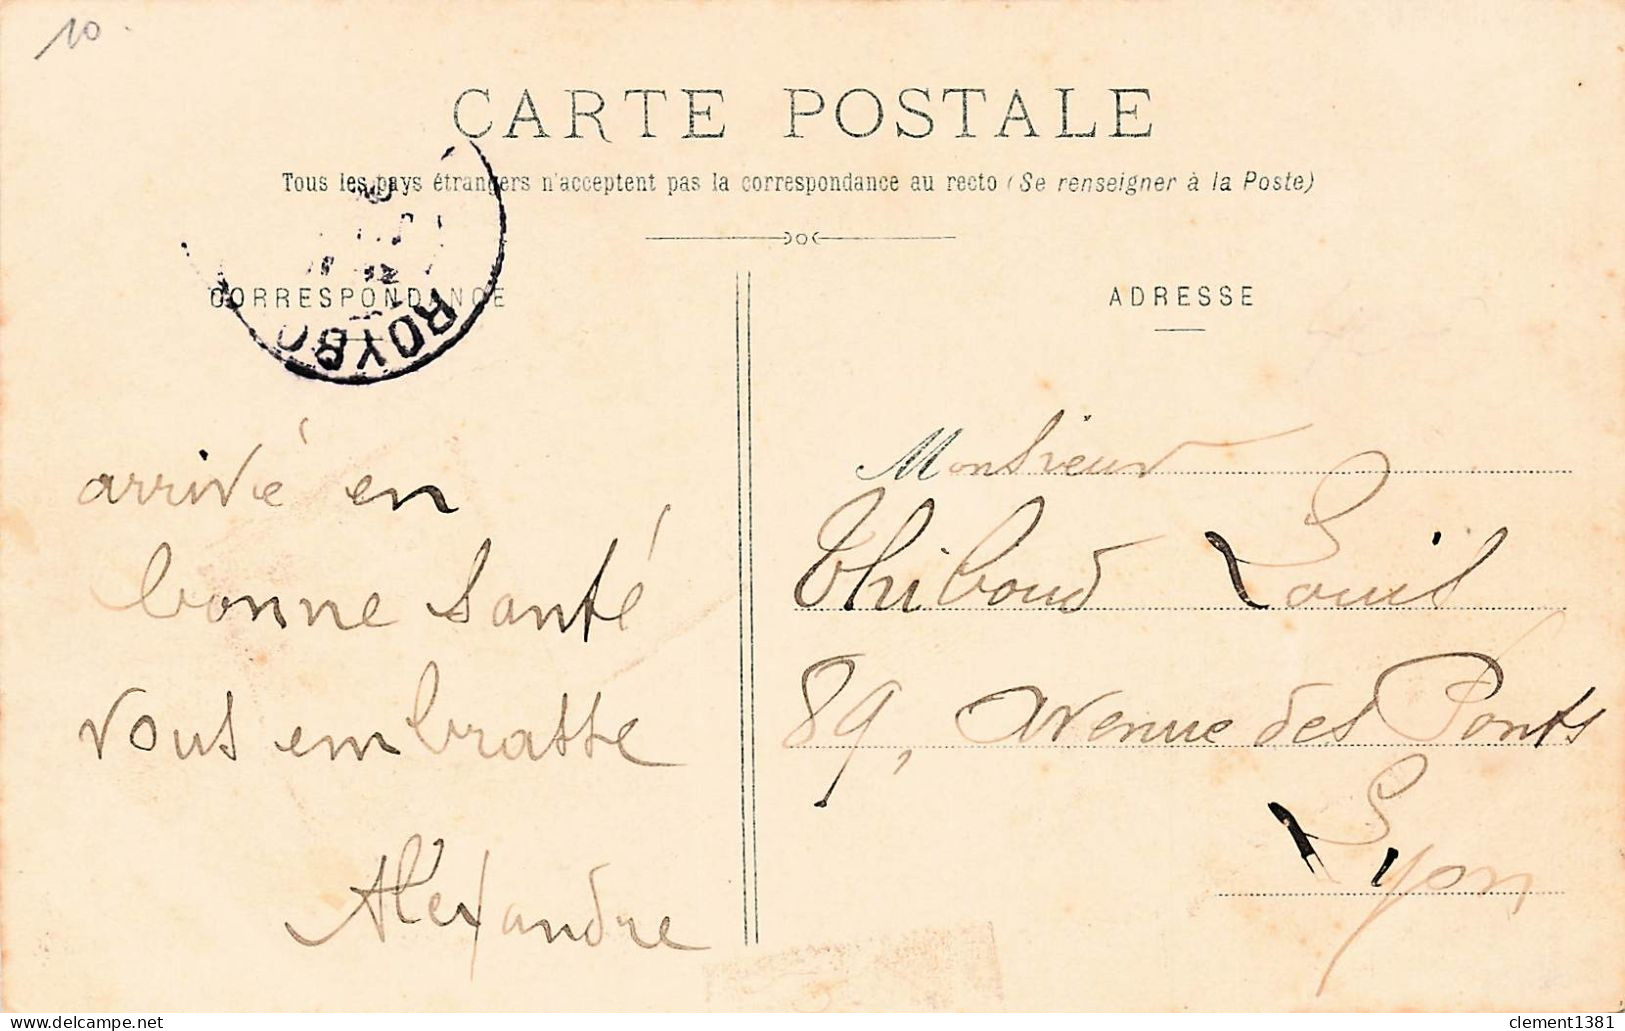 10
CARTE POSTALE
Tous les pays étrangers n'acceptent pas la correspondance au recto (Se renseigner à la Poste)
CORRESPONDANCE
ADRESSE
ROYBO
arrivé en
bonne santé
vous embrasse
Alexandre
Monsieur
Thiboud Louis
89, Avenue des Ponts
Lyon
www.delcampe.net
clement1381